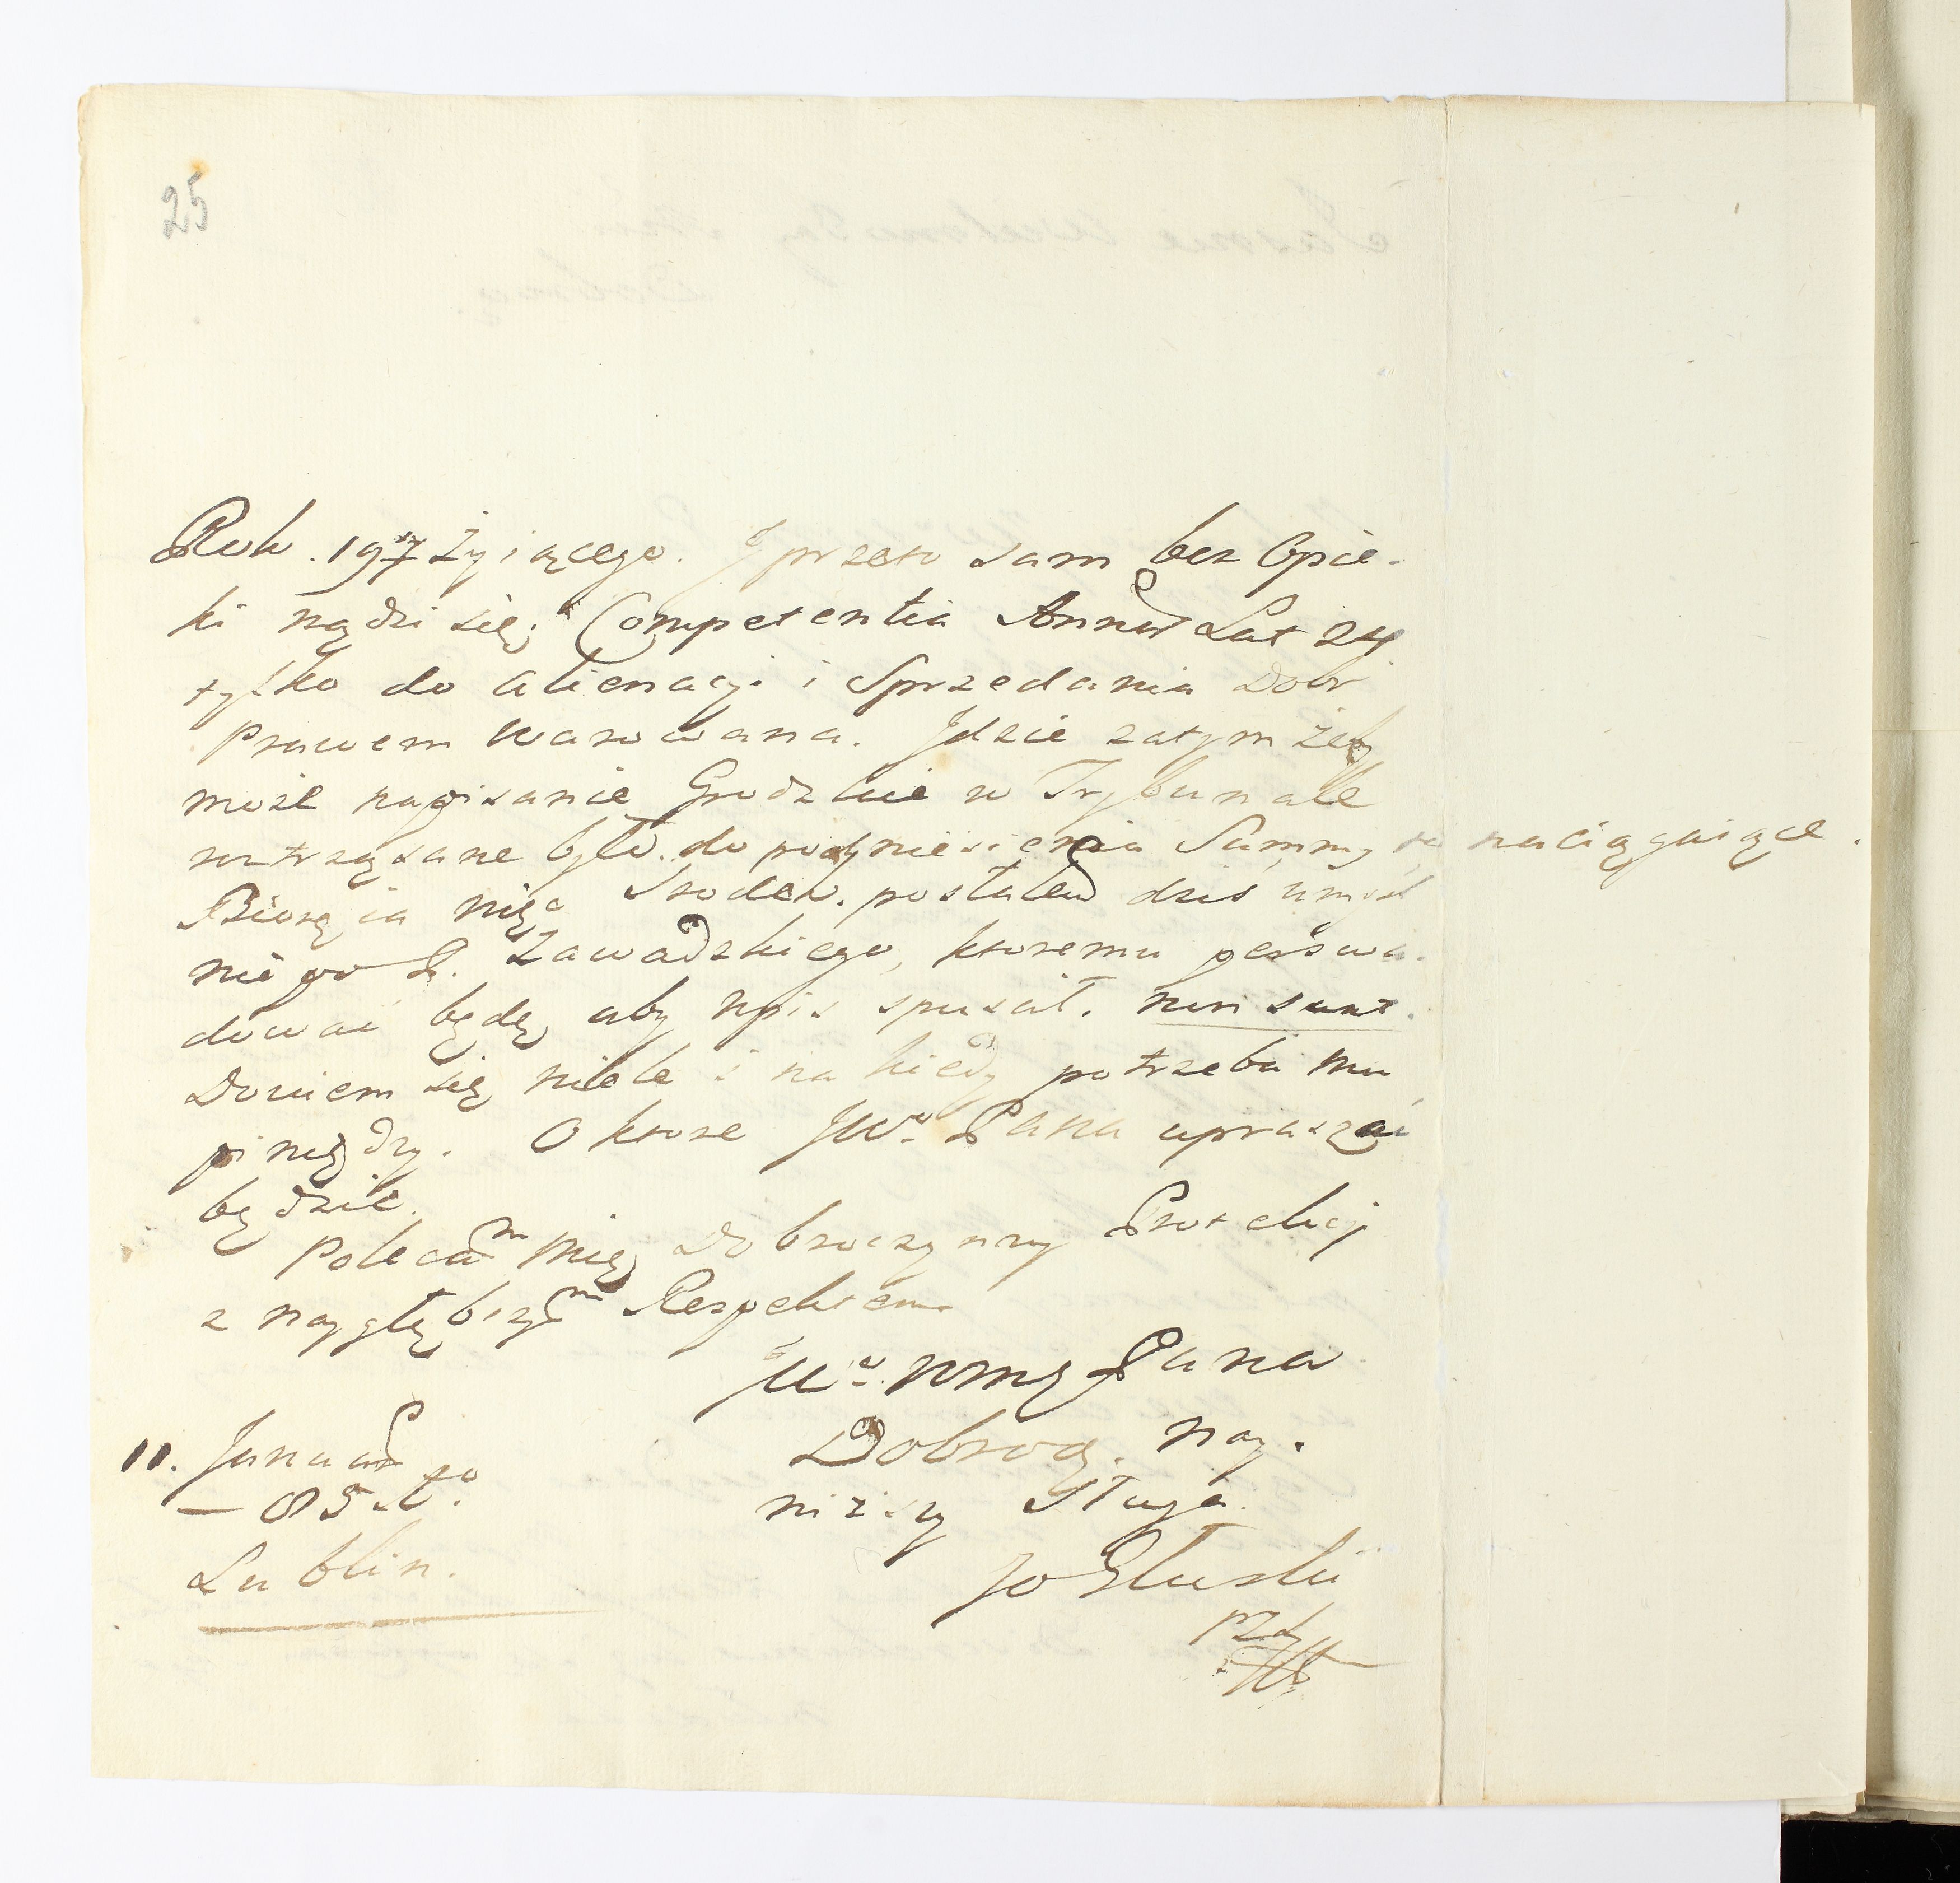 25
Rok. 19 żyiącego. I przeto sam bez Opie-
ki rządzi się; Competentia Annor Lat 24
tylko do alienacyi i Sprzedania Dobr
Prawem warowana. Jdzie zatym żeby
może napisanie Grodzkie w Trybunale
roztrząsane było. do podniesienia Summy naciągaiące.
Biorąc ia więc srodek. posłałem dziś umyśl
nie po P. Zawadzkiego, ktoremu perswa-
dować będę aby wpis spuscił.
Dowiem się wiele i na kiedy potrzeba mu
piniędzy. O ktore JWo Pana upraszać
będzie.
Polecam mię Dobroczynny Protekcyi
z naygłębszym Respektem
JWo Pana
Dobrodz. nay-
niższy Sługa
11. Januar
– 85
Lublin.